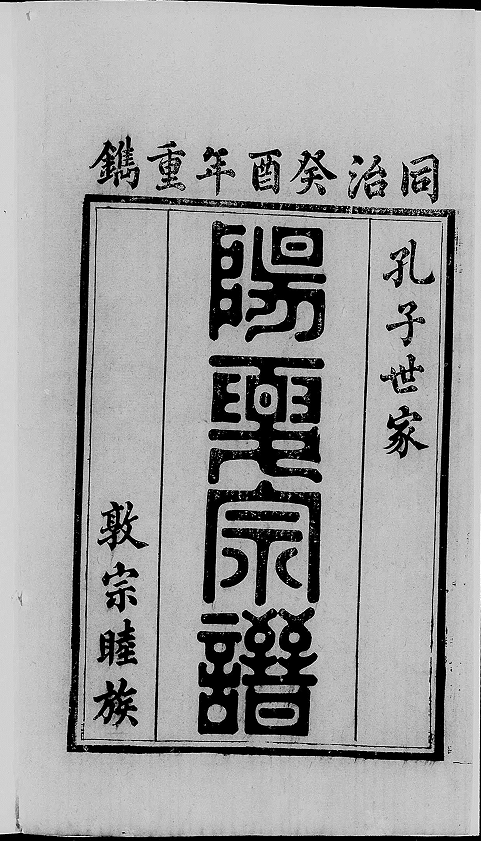 同治癸酉年重鐫
孔子世家
陽夏宗譜
敦宗睦族